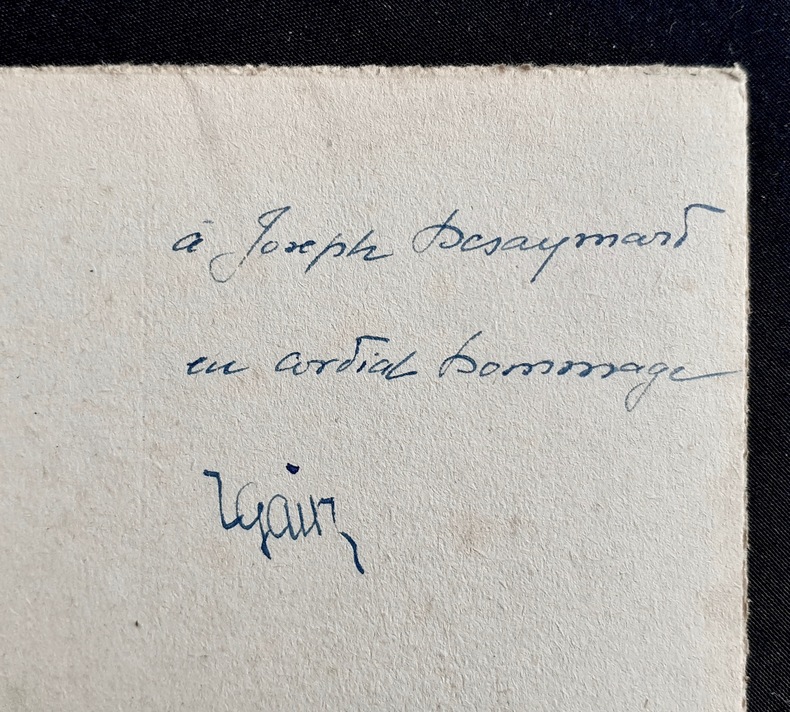 à Joseph Desaymard
en cordial hommage